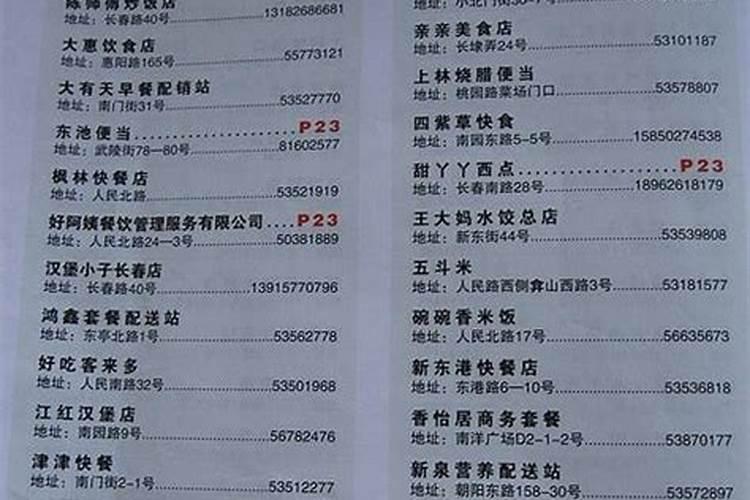 陈师傅炒饭店
地址：长春路40号 13182686681
大惠饮食店
地址：惠阳路165号 55773121
大有天早餐配销站
地址：南门街31号 53527770
东池便当 P23
地址：武陵街78—80号 81602577
枫林快餐店
地址：人民北路 53521919
好阿姨餐饮管理服务有限公司 P23
地址：人民北路24—3号 50381889
汉堡小子长春店
地址：长春路40号 13915770796
鸿鑫套餐配送站
地址：东亭北路1号 53562778
好吃客来多
地址：人民南路32号 53501968
江红汉堡店
地址：南园路9号 56782476
津津快餐
地址：南门街2-1号 53512277
亲亲美食店
地址：长埭弄24号 53101187
上林烧腊便当
地址：桃园路菜场门口 53578807
四紫草快食
地址：南园东路5-5号 15850274538
甜丫丫西点 P23
地址：长春南路28号 18962618179
王大妈水饺总店
地址：新东街44号 53539808
五斗米
地址：人民路西侧弇山西路3号 53181577
碗碗香米饭
地址：人民北路17号 56635673
新东港快餐店
地址：东港路6—10号 53536818
香怡居商务套餐
地址：南洋广场D2-1-2号 53870177
新泉营养配送站
地址：朝阳东路158-30号 53572897